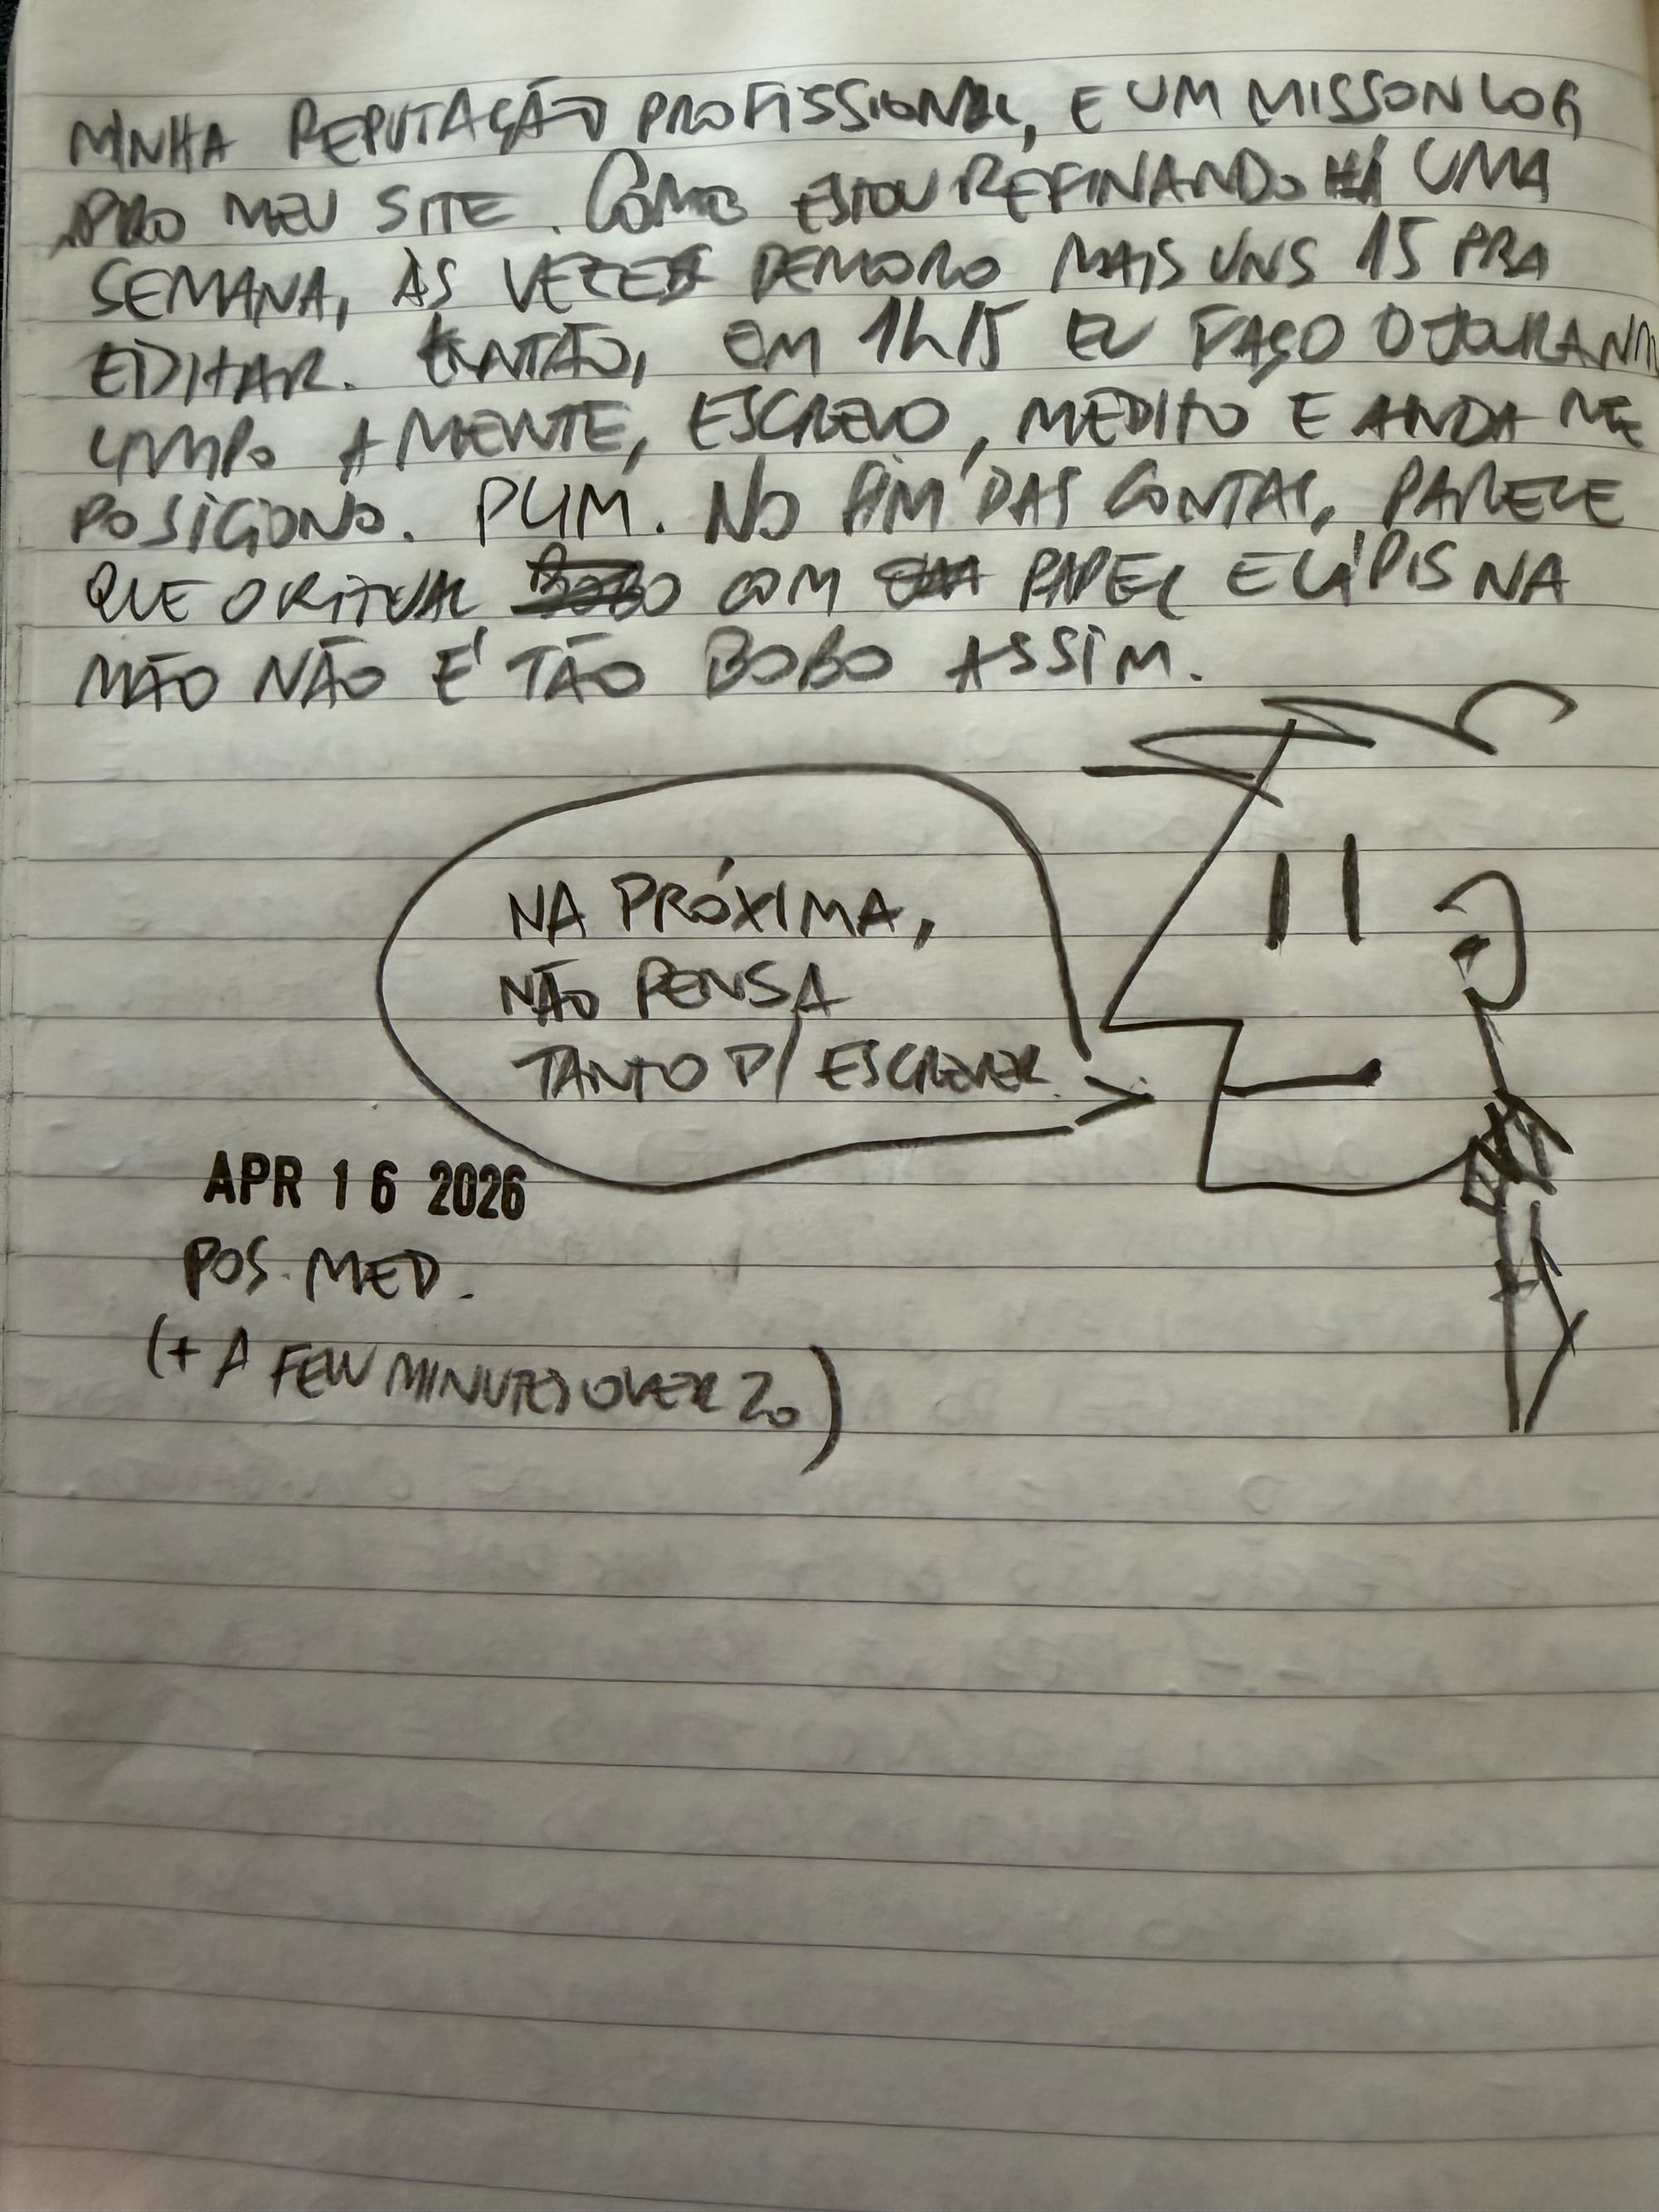 MINHA REPUTAÇÃO PROFISSIONAL, E UM MISSON LOG
PRO MEU SITE. COMO ESTOU REFINANDO HÁ UMA
SEMANA, ÀS VEZES DEMORO MAIS UNS 15 PRA
EDITAR. ENTÃO, EM 1H15 EU FAÇO O
LIMPO A MENTE, ESCREVO, MEDITO E AINDA ME
POSICIONO. PUM. NO FIM DAS CONTAS, PARECE
QUE O RITUAL COM PAPEL E LÁPIS NA
MÃO NÃO É TÃO BOBO ASSIM.
NA PRÓXIMA,
NÃO PENSA
TANTO P/ ESCREVER.
APR 16 2026
POS. MED.
(+ A FEW MINUTES OVER 20)